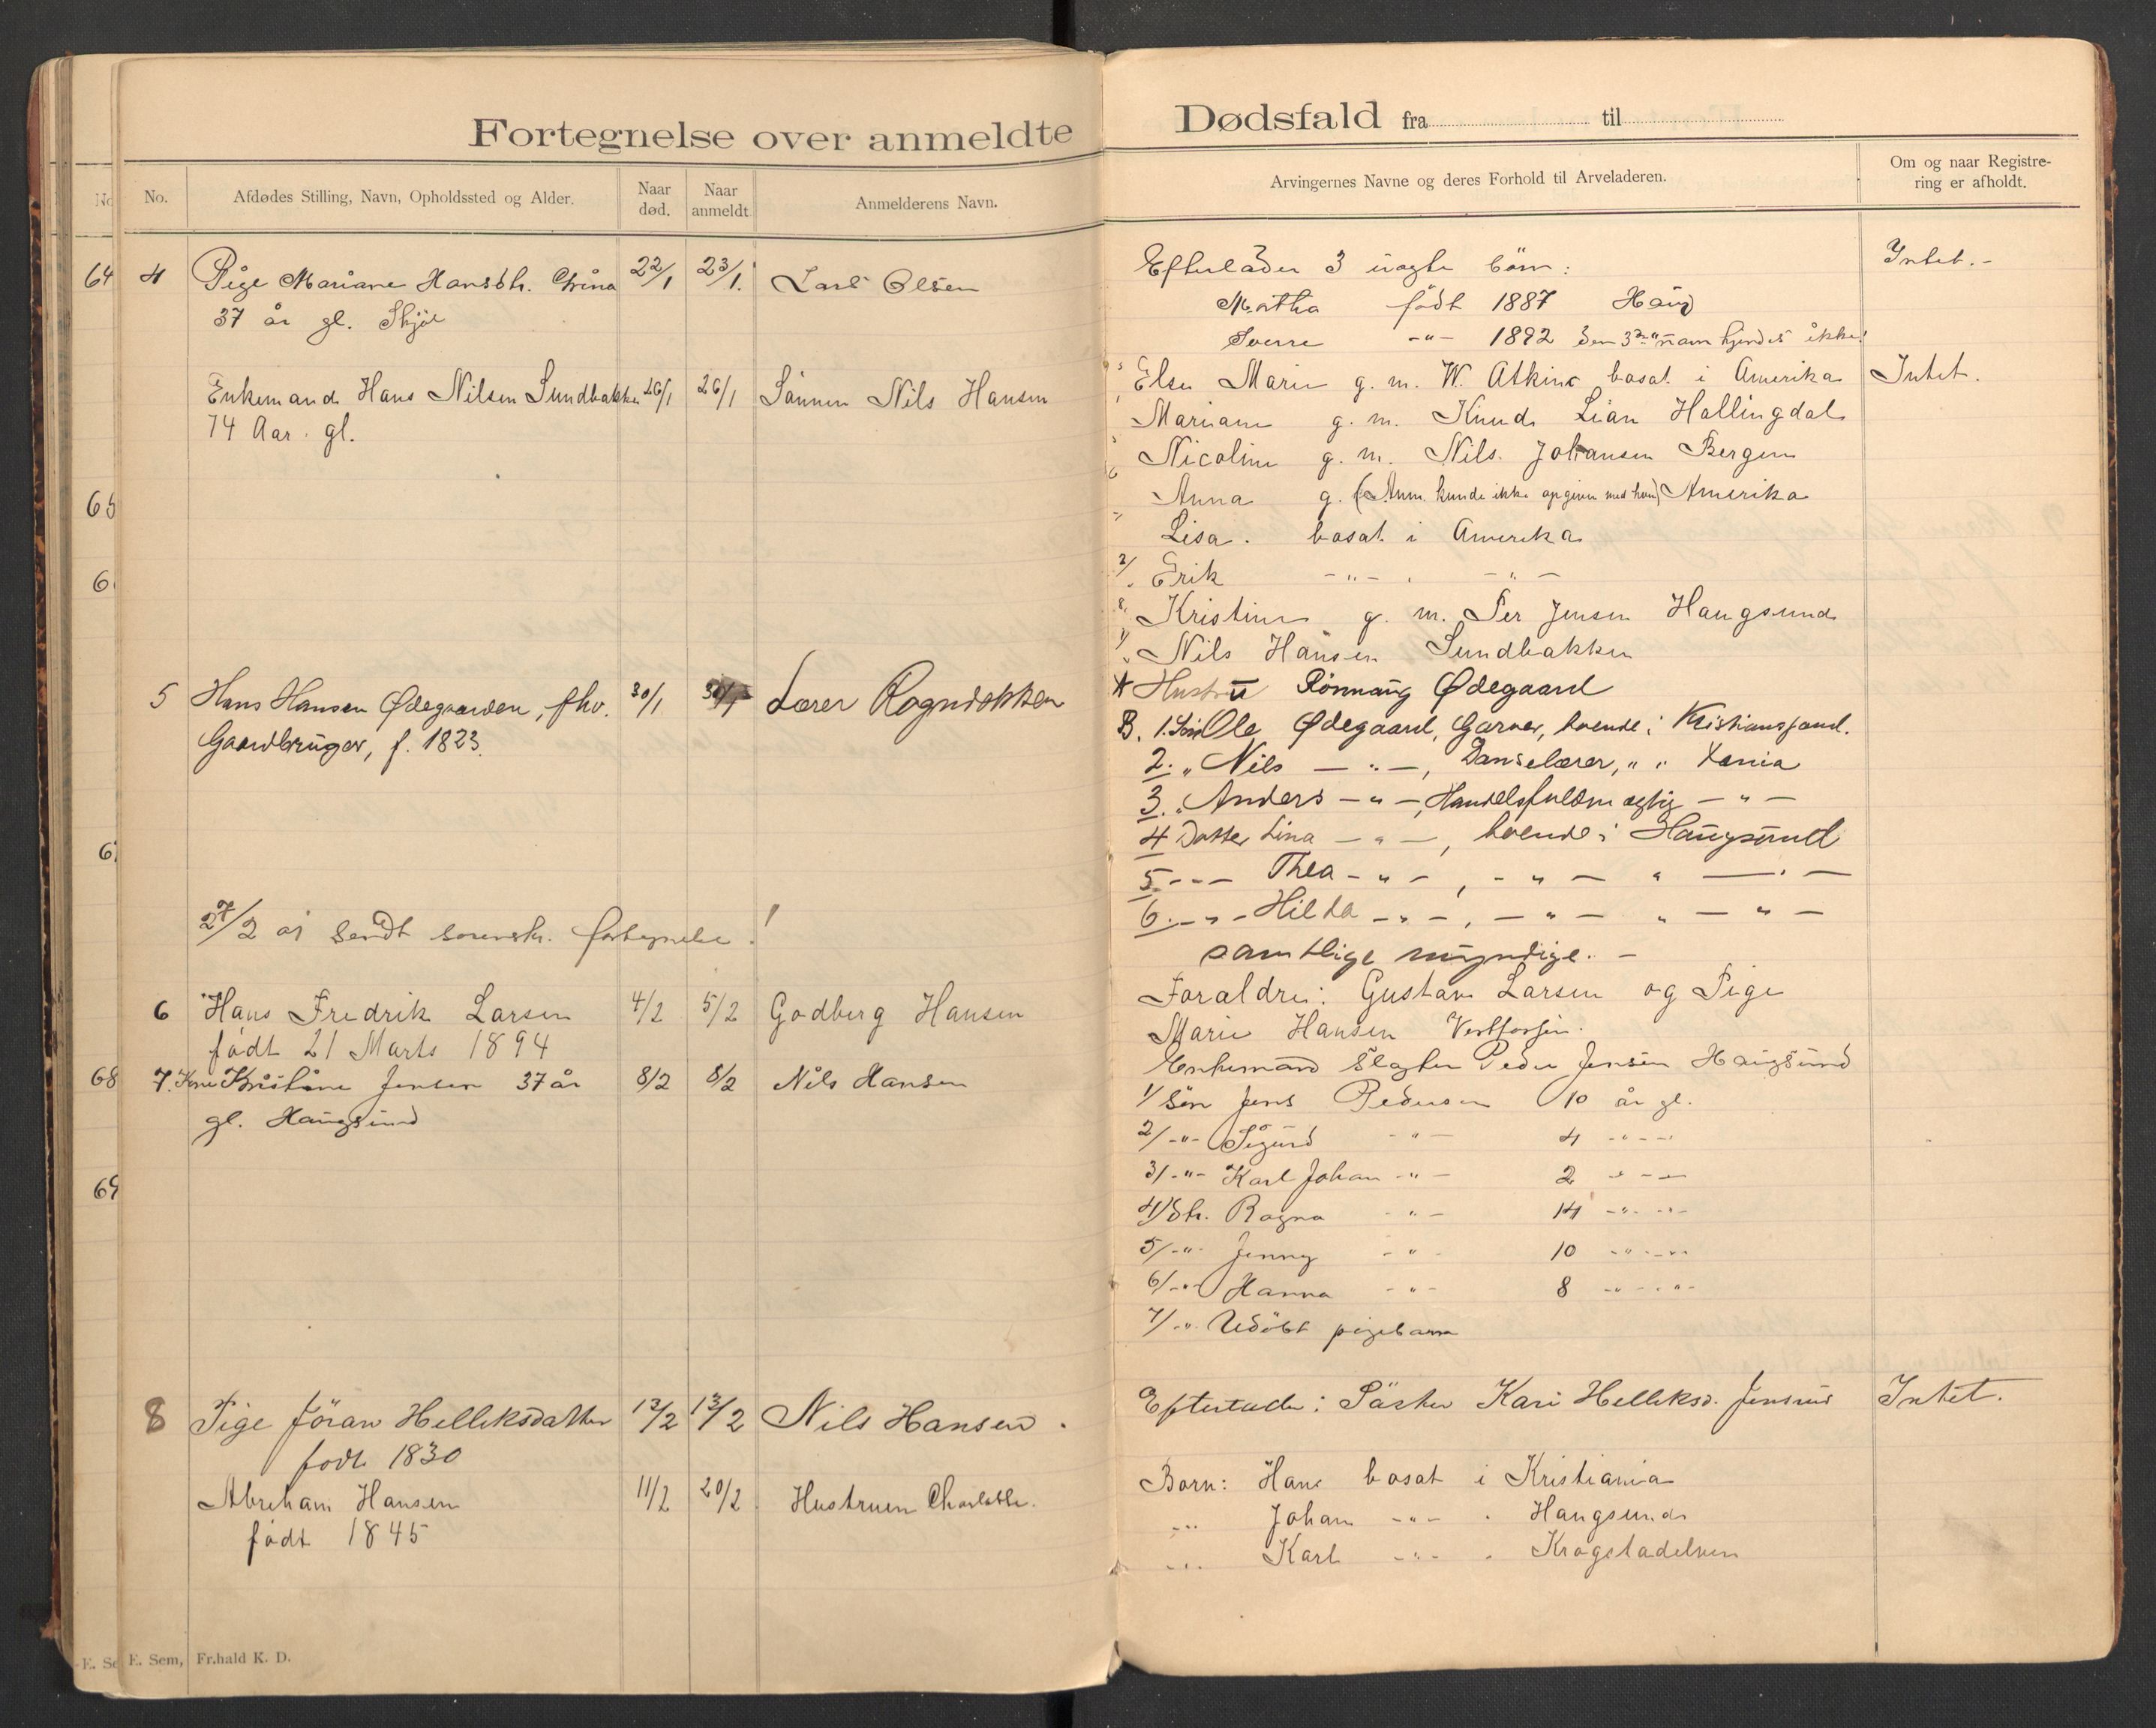 Fortegnelse over anmeldte
No.
Afdødes Stilling, Navn, Opholdssted og Alder.
Naar død.
Naar anmeldt.
Anmelderens Navn.
4 Pige Mariane Hansdtr. 22/1 23/1. Karl Olsen
37 år gl. Skjøl
Enkemand Hans Nilsen Sundbakken 26/1 26/1 Sønnen Nils Hansen
74 Aar gl.
5 Hans Hansen Ødegaarden, fhv. 30/1 30/1 Lærer Rogndokken
Gaardbruger, f. 1823.
27/2 95 sendt sorenskr. fortegnelse.
6 Hans Fredrik Larsen 4/2 5/2 Godberg Hansen
født 21 Marts 1894
7. Kone Kristine Jensen 37 år 8/2 8/2 Nils Hansen
gl. Haugsund
8 Pige Jöran Helleksdatter 12/2 13/2 Nils Hansen.
født 1830
Abraham Hansen 11/2 20/2 Hustruen Charlotte.
født 1845
E. Sem, Fr.hald K. D.
64
65
6
6
68
69
Dødsfald fra til
Arvingernes Navne og deres Forhold til Arveladeren.
Om og naar Registrering er afholdt.
Efterlader 3 uægte börn: Intet.-
Martha født 1887 Haug
Sverre -"- 1892 den 3die navn kjendes ikke!
Else Marie g. m. W. Atkins bosat i Amerika Intet.
Mariane g. m. Knud Lian Hallingdal
Nicoline g. m. Nils Johansen Bergen
Anna g. (Anm. kunde ikke opgiven med hvem) Amerika
Lisa. bosat i Amerika
2/ Erik -"- -"-
8. Kristine g. m. Per Jensen Haugsund
1/ Nils Hansen Sundbakken
A Hustru Rønnaug Ødegaard
B. 1. Søn Ole Ødegaard, Garver, boende i Kristianssand.
2. " Nils -"-, Danselærer, " " Xania
3. " Anders -"-, Handelsfuldmægtig -"-
4 Datter Lina -"-, boende i Haugsund
5 -"- Thea -"-, -"- " -"-
6. -"- Hilda -"-, -"- " -"-
samtlige myndige. -
Foraldre: Gustav Larsen og Pige
Marie Hansen Vestfossen.
Enkemand Slagter Peder Jensen Haugsund
1/ Søn Jens Pedersen 10 år gl.
2/ -"- Sigurd -"- 4 -"-
3/ -"- Karl Johan -"- 2 -"-
4/ Dtr. Ragna -"- 14 -"- -"-
5/ -"- Jenny -"- 10 -"- -"-
6/ -"- Hanna -"- 8 -"- -"-
7/ -"- Udöbt pigebarn
Efterlader: Söster Kari Helleksd. Jensrud Intet.
Born: Hans bosat i Kristiania
-"- Johan -"- " Haugsund
-"- Karl -"- " Krogstadelven